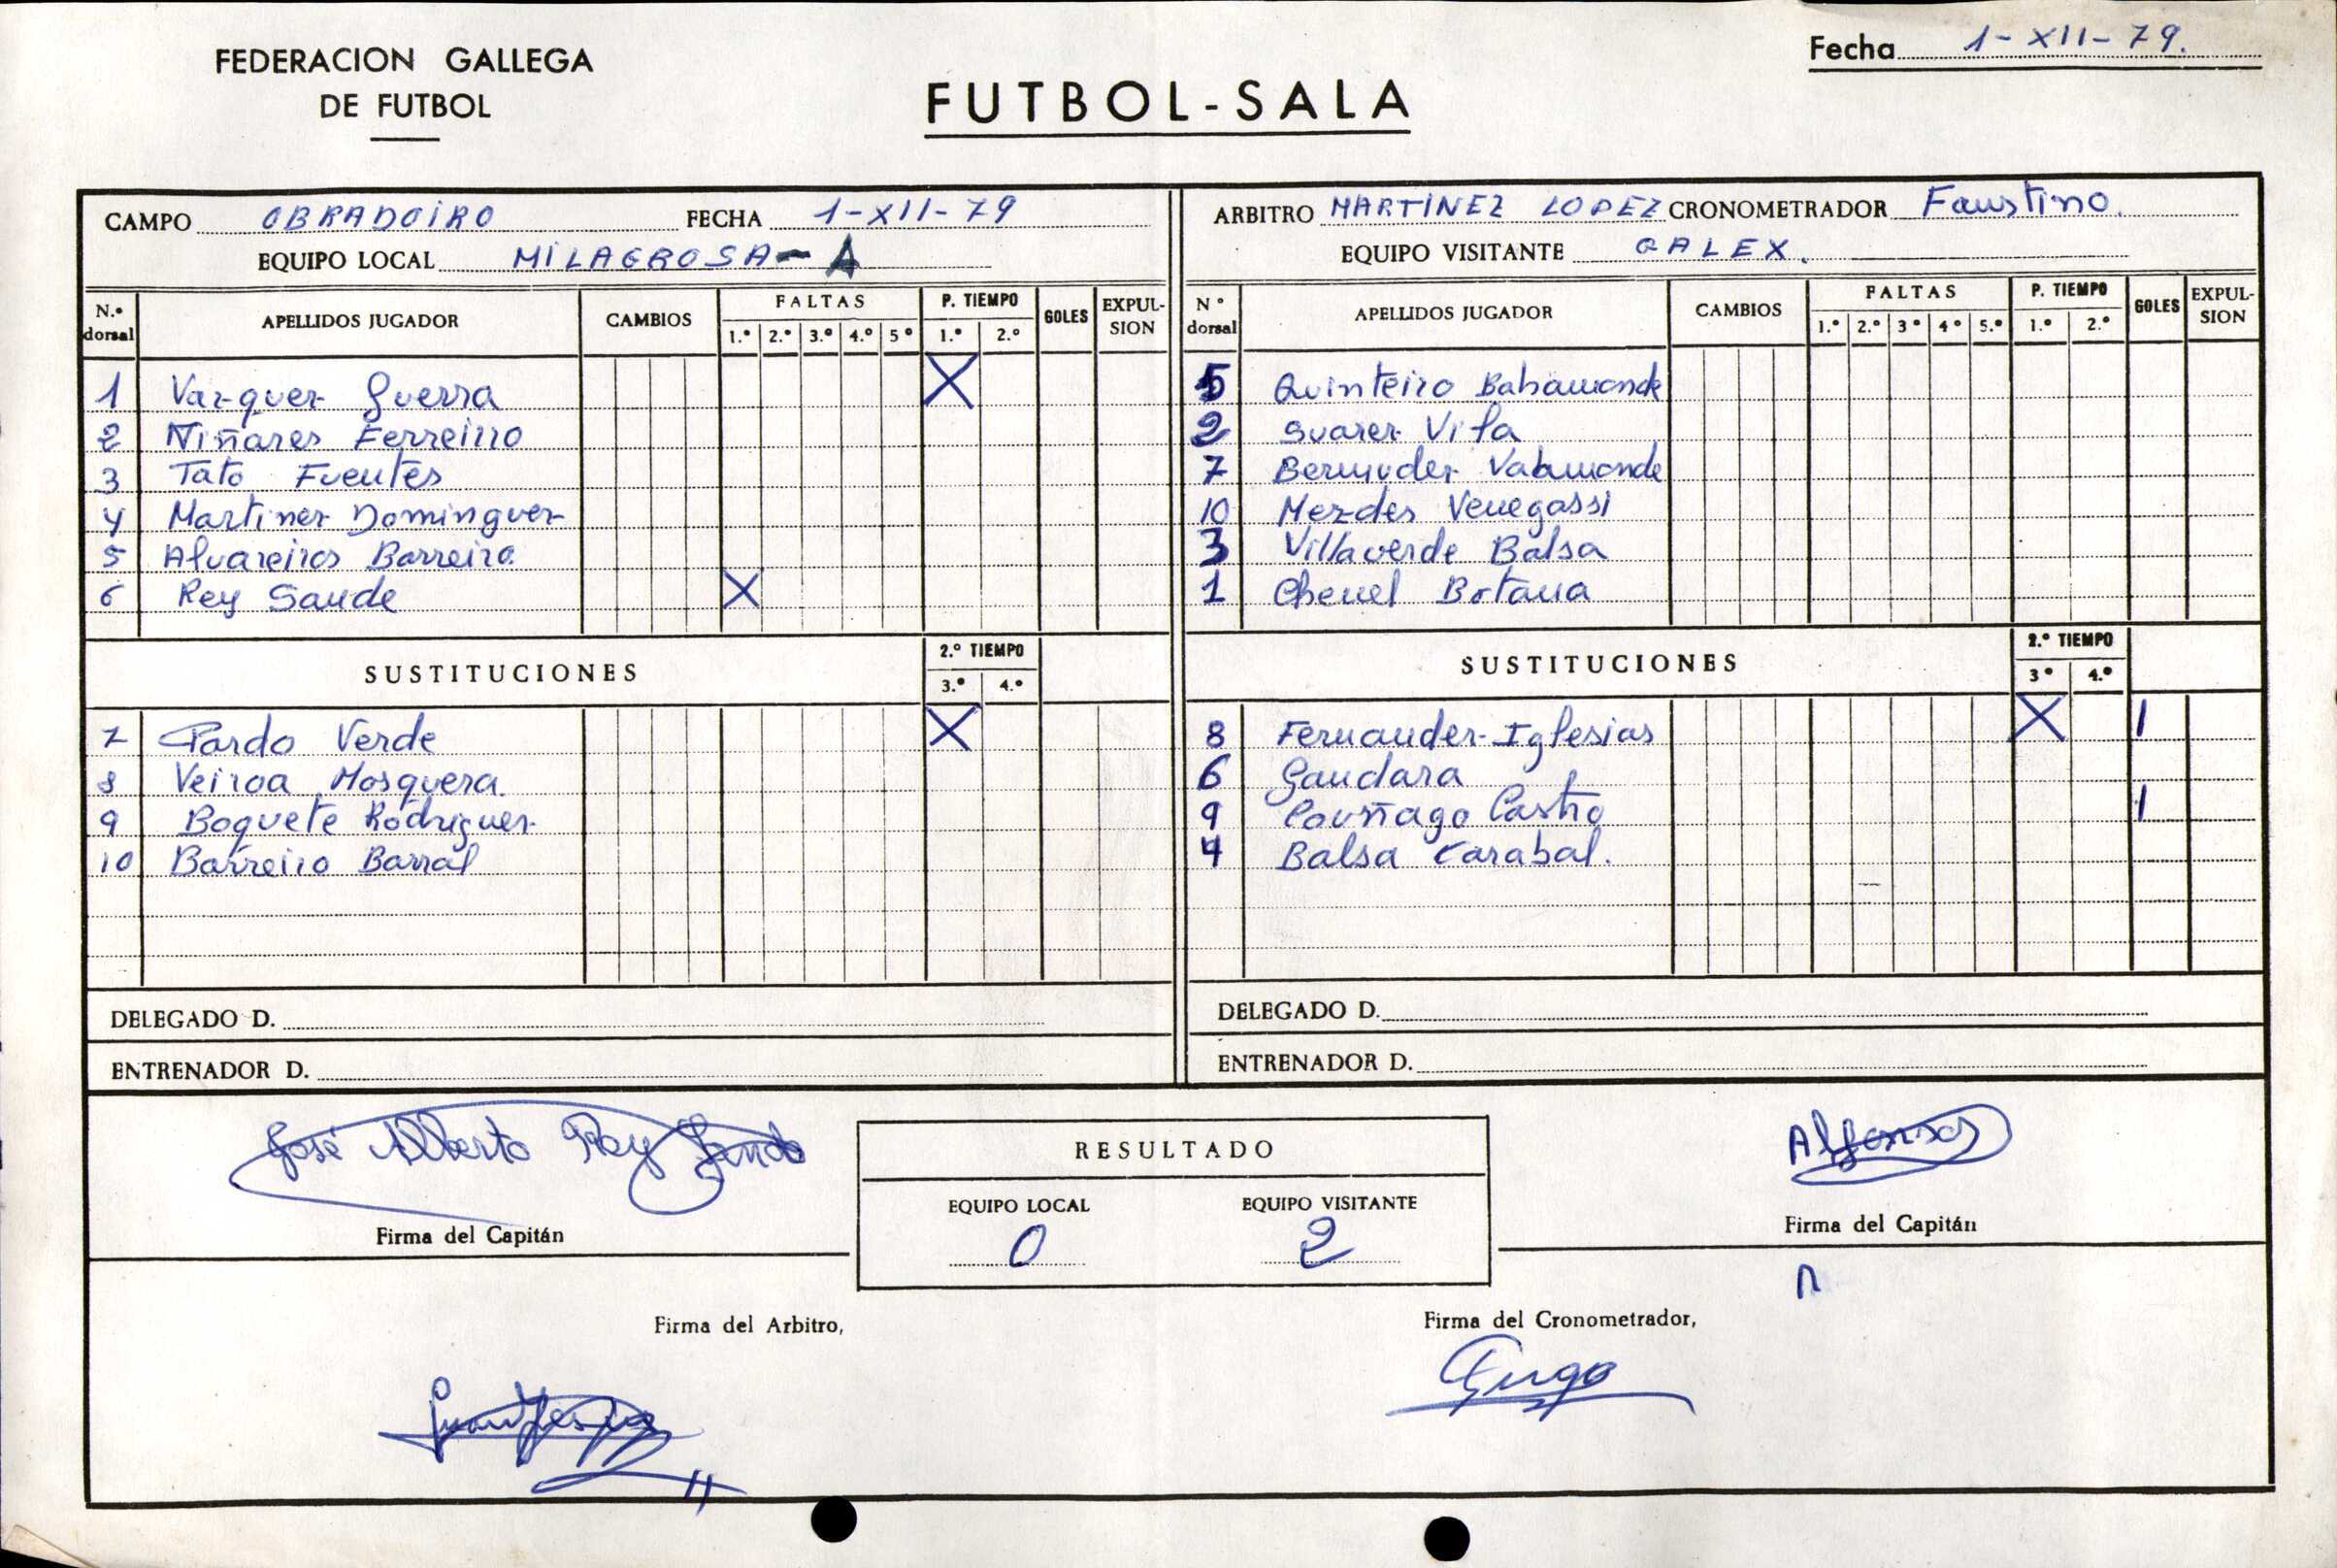 FEDERACION GALLEGA
DE FUTBOL
FUTBOL-SALA
Fecha 1-XII-79.
CAMPO OBRADOIRO FECHA 1-XII-79
EQUIPO LOCAL MILAGROSA-A
N.º dorsal APELLIDOS JUGADOR CAMBIOS FALTAS 1.º 2.º 3.º 4.º 5º P. TIEMPO 1.º 2.º GOLES EXPUL-SION
1 Vazquez Guerra X
2 Niñares Ferreiro
3 Tato Fuentes
4 Martinez Dominguez
5 Alvareiros Barreiro
6 Rey Sande X
SUSTITUCIONES 2.º TIEMPO 3.º 4.º
7 Pardo Verde X
8 Veiroa Mosquera.
9 Boquete Rodriguez
10 Barreiro Barral
DELEGADO D.
ENTRENADOR D.
ARBITRO MARTINEZ LOPEZ CRONOMETRADOR Faustino.
EQUIPO VISITANTE GALEX.
Nº dorsal APELLIDOS JUGADOR CAMBIOS FALTAS 1.º 2.º 3º 4º 5.º P. TIEMPO 1.º 2.º GOLES EXPUL-SION
5 Quinteiro Bahamonde
2 Suarez Vila
7 Bermudez
10 Venegassi
3 Villaverde Balsa
1 Chenel Botana
SUSTITUCIONES 2.º TIEMPO 3º 4.º
8 Fernandez-Iglesias X 1
6 Gandara
9 Castro 1
4 Balsa Carabal.
DELEGADO D.
ENTRENADOR D.
José Alberto Rey Sande
Firma del Capitán
RESULTADO
EQUIPO LOCAL EQUIPO VISITANTE
0 2
Alfonso
Firma del Capitán
Firma del Arbitro,
Firma del Cronometrador,